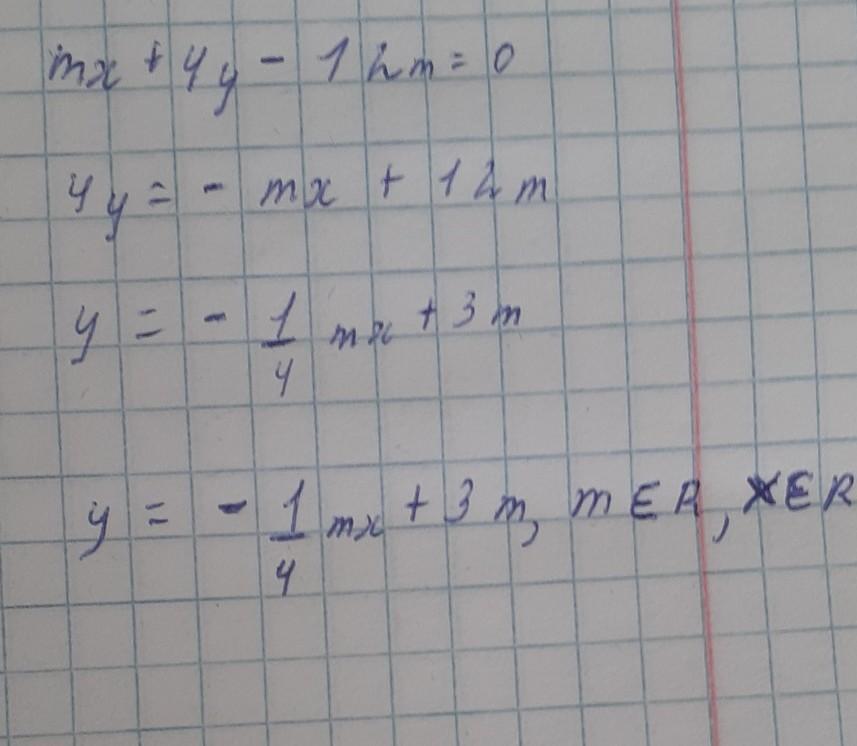 mx + 4y - 12m = 0
4y = - mx + 12m
y = - 1/4 mx + 3m
y = - 1/4 mx + 3m, m ∈ R, x ∈ R